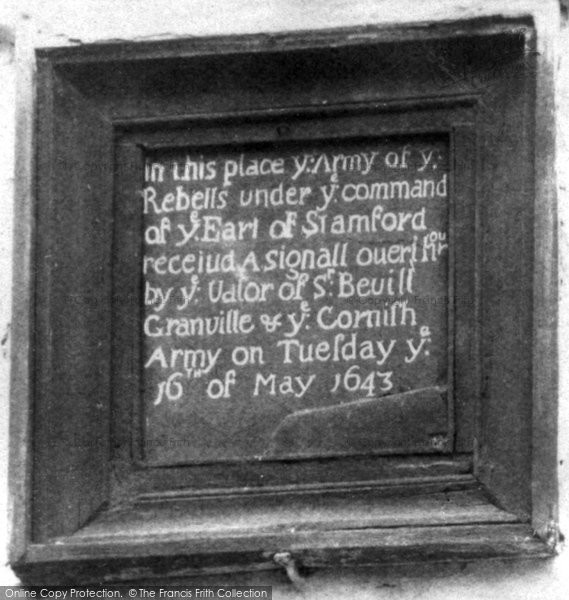 In this place yͤ: Army of yͤ:
Rebells under yͤ: command
of yͤ: Earl of Stamford
receiud A signall ouerthrou
by yͤ: Ualor of Sͬ: Beuill
Granville & yͤ: Corniſh
Army on Tueſday yͤ:
16ᵀᴴ of May 1643
Online Copy Protection. © The Francis Frith Collection